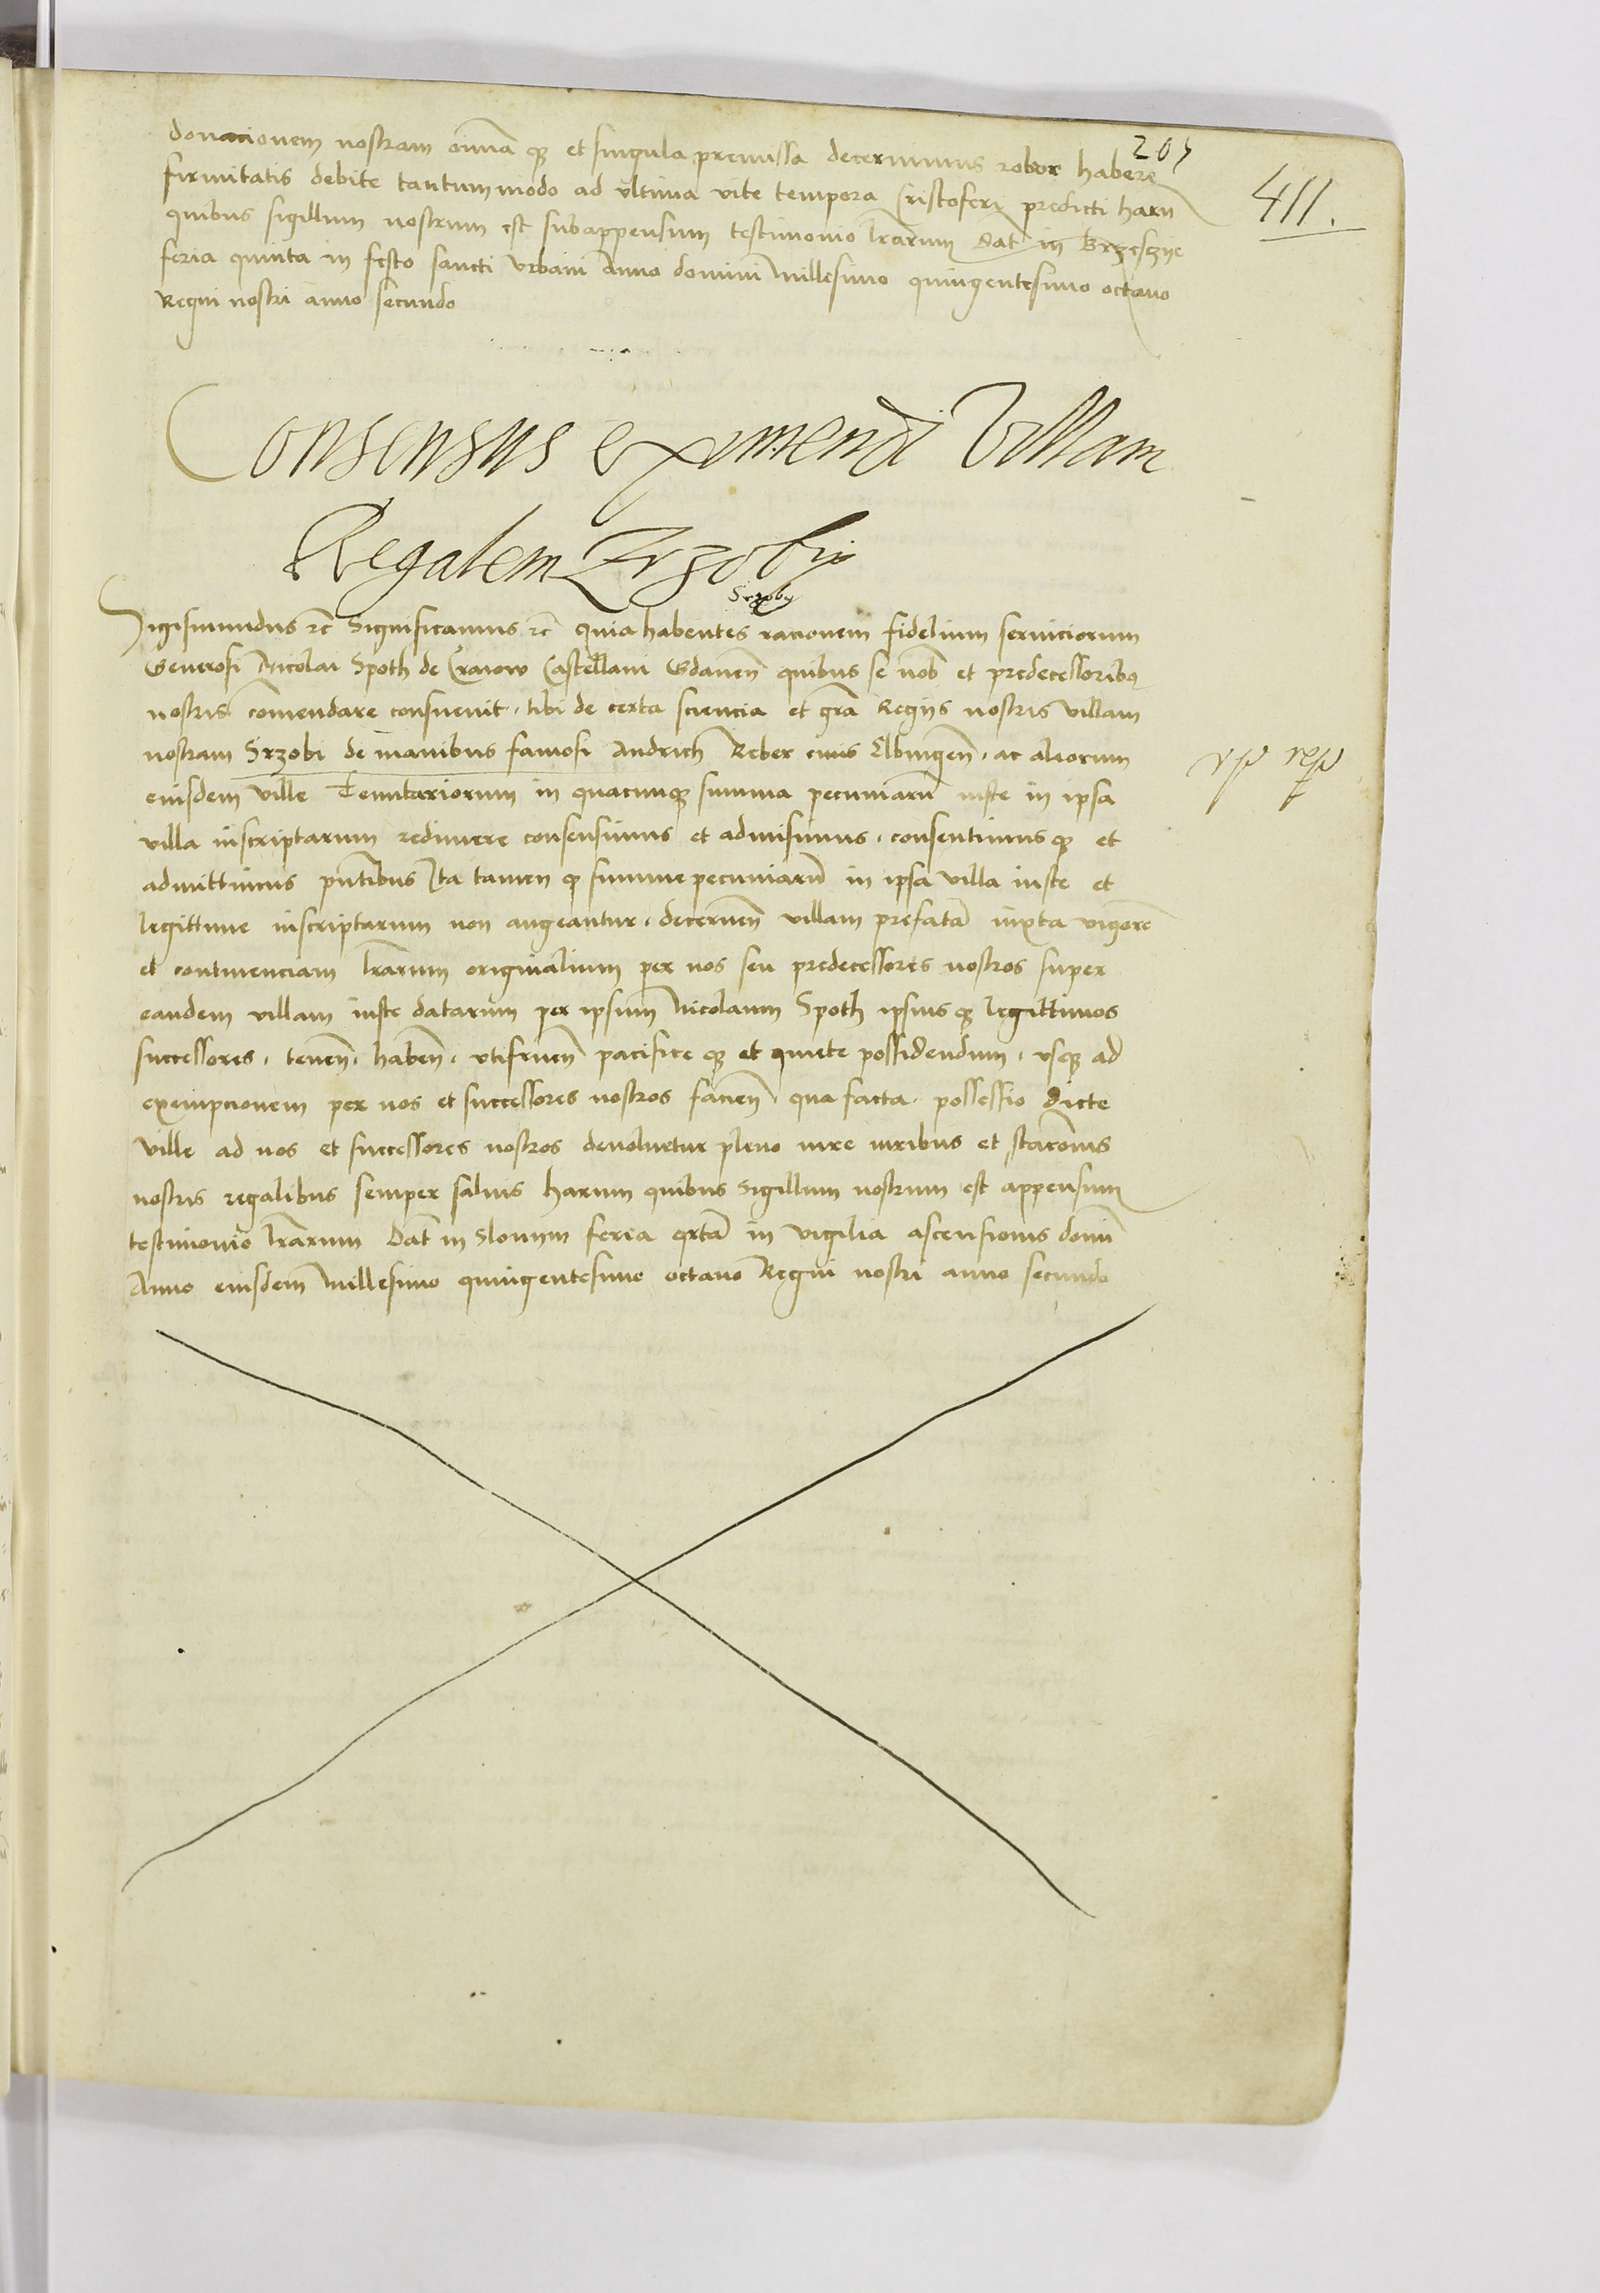 205
411.
donacionem nostram om̄ia q3 et singula premissa decernimus robor habere
firmitatis debite tantummodo ad ultima vite tempora Cristoferi predicti harū
quibus sigillum nostrum est subappensum testimonio lr̄arum Dat in Brzesczye
feria quinta in festo sancti Urbani Anno domini Millesimo quingentesimo octavo
Regni nostri anno secundo
Consensus eximendi Villam
Regalem Srzoby
Srzoby
Sigismundus rc̄ Significamus rc̄ quia habentes racionem fidelium serviciorum
Generosi Nicolai Spoth de Craiow Castellani Gdanen̄ quibus se nob̄ et predecessorib9
nostris comendare consuevit, sibi de certa sciencia et gr̄a Regiis nostris villam
nostram Srzobi de manibus famosi Andrich Reber civis Elbingen̄, ac aliorum
eiusdem ville Tenutariorum in quacunq3 summa pecuniarū iuste in ipsa
villa inscriptarum redimere consensimus et admisimus, consentimusq3 et
admittimus pn̄tibus Ita tamen q3 summe pecuniarū in ipsa villa iuste et
legittime inscriptarum non augeantur, decernen̄ villam prefatā iuxta vigorē
et continenciam lr̄arum originalium per nos seu predecessores nostros super
eandem villam iuste datarum per ipsum Nicolaum Spoth ipsiusq3 legittimos
successores, tenen̄, haben̄, utifruen̄ pacifice q3 et quiete possidendum, usq3 ad
exempcionem per nos et successores nostros facien̄ qua facta possessio dicte
ville ad nos et successores nostros devolvetur pleno iure iuribus et stacionis
nostris regalibus semper salvis harum quibus Sigillum nostrum est appensum
testimonio lr̄arum Dat̄ in Slonym feria qrtā in vigilia ascensionis domī
Anno eiusdem Millesimo quingentesimo octavo Regni nostri anno secundo